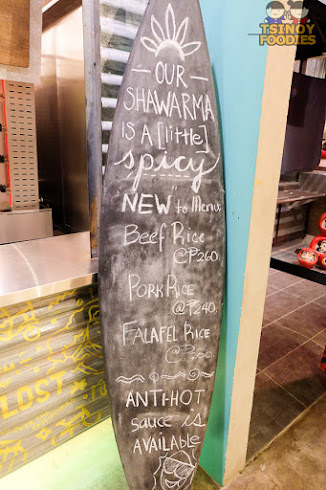 TSINOY
FOODIES
OUR
SHAWARMA
IS A [little]
spicy
NEW to Menu:
Beef Rice
@₱260
Pork Rice
@₱240
FALAFEL RICE
ANTI-HOT
sauce is
AVAILABLE
LOST